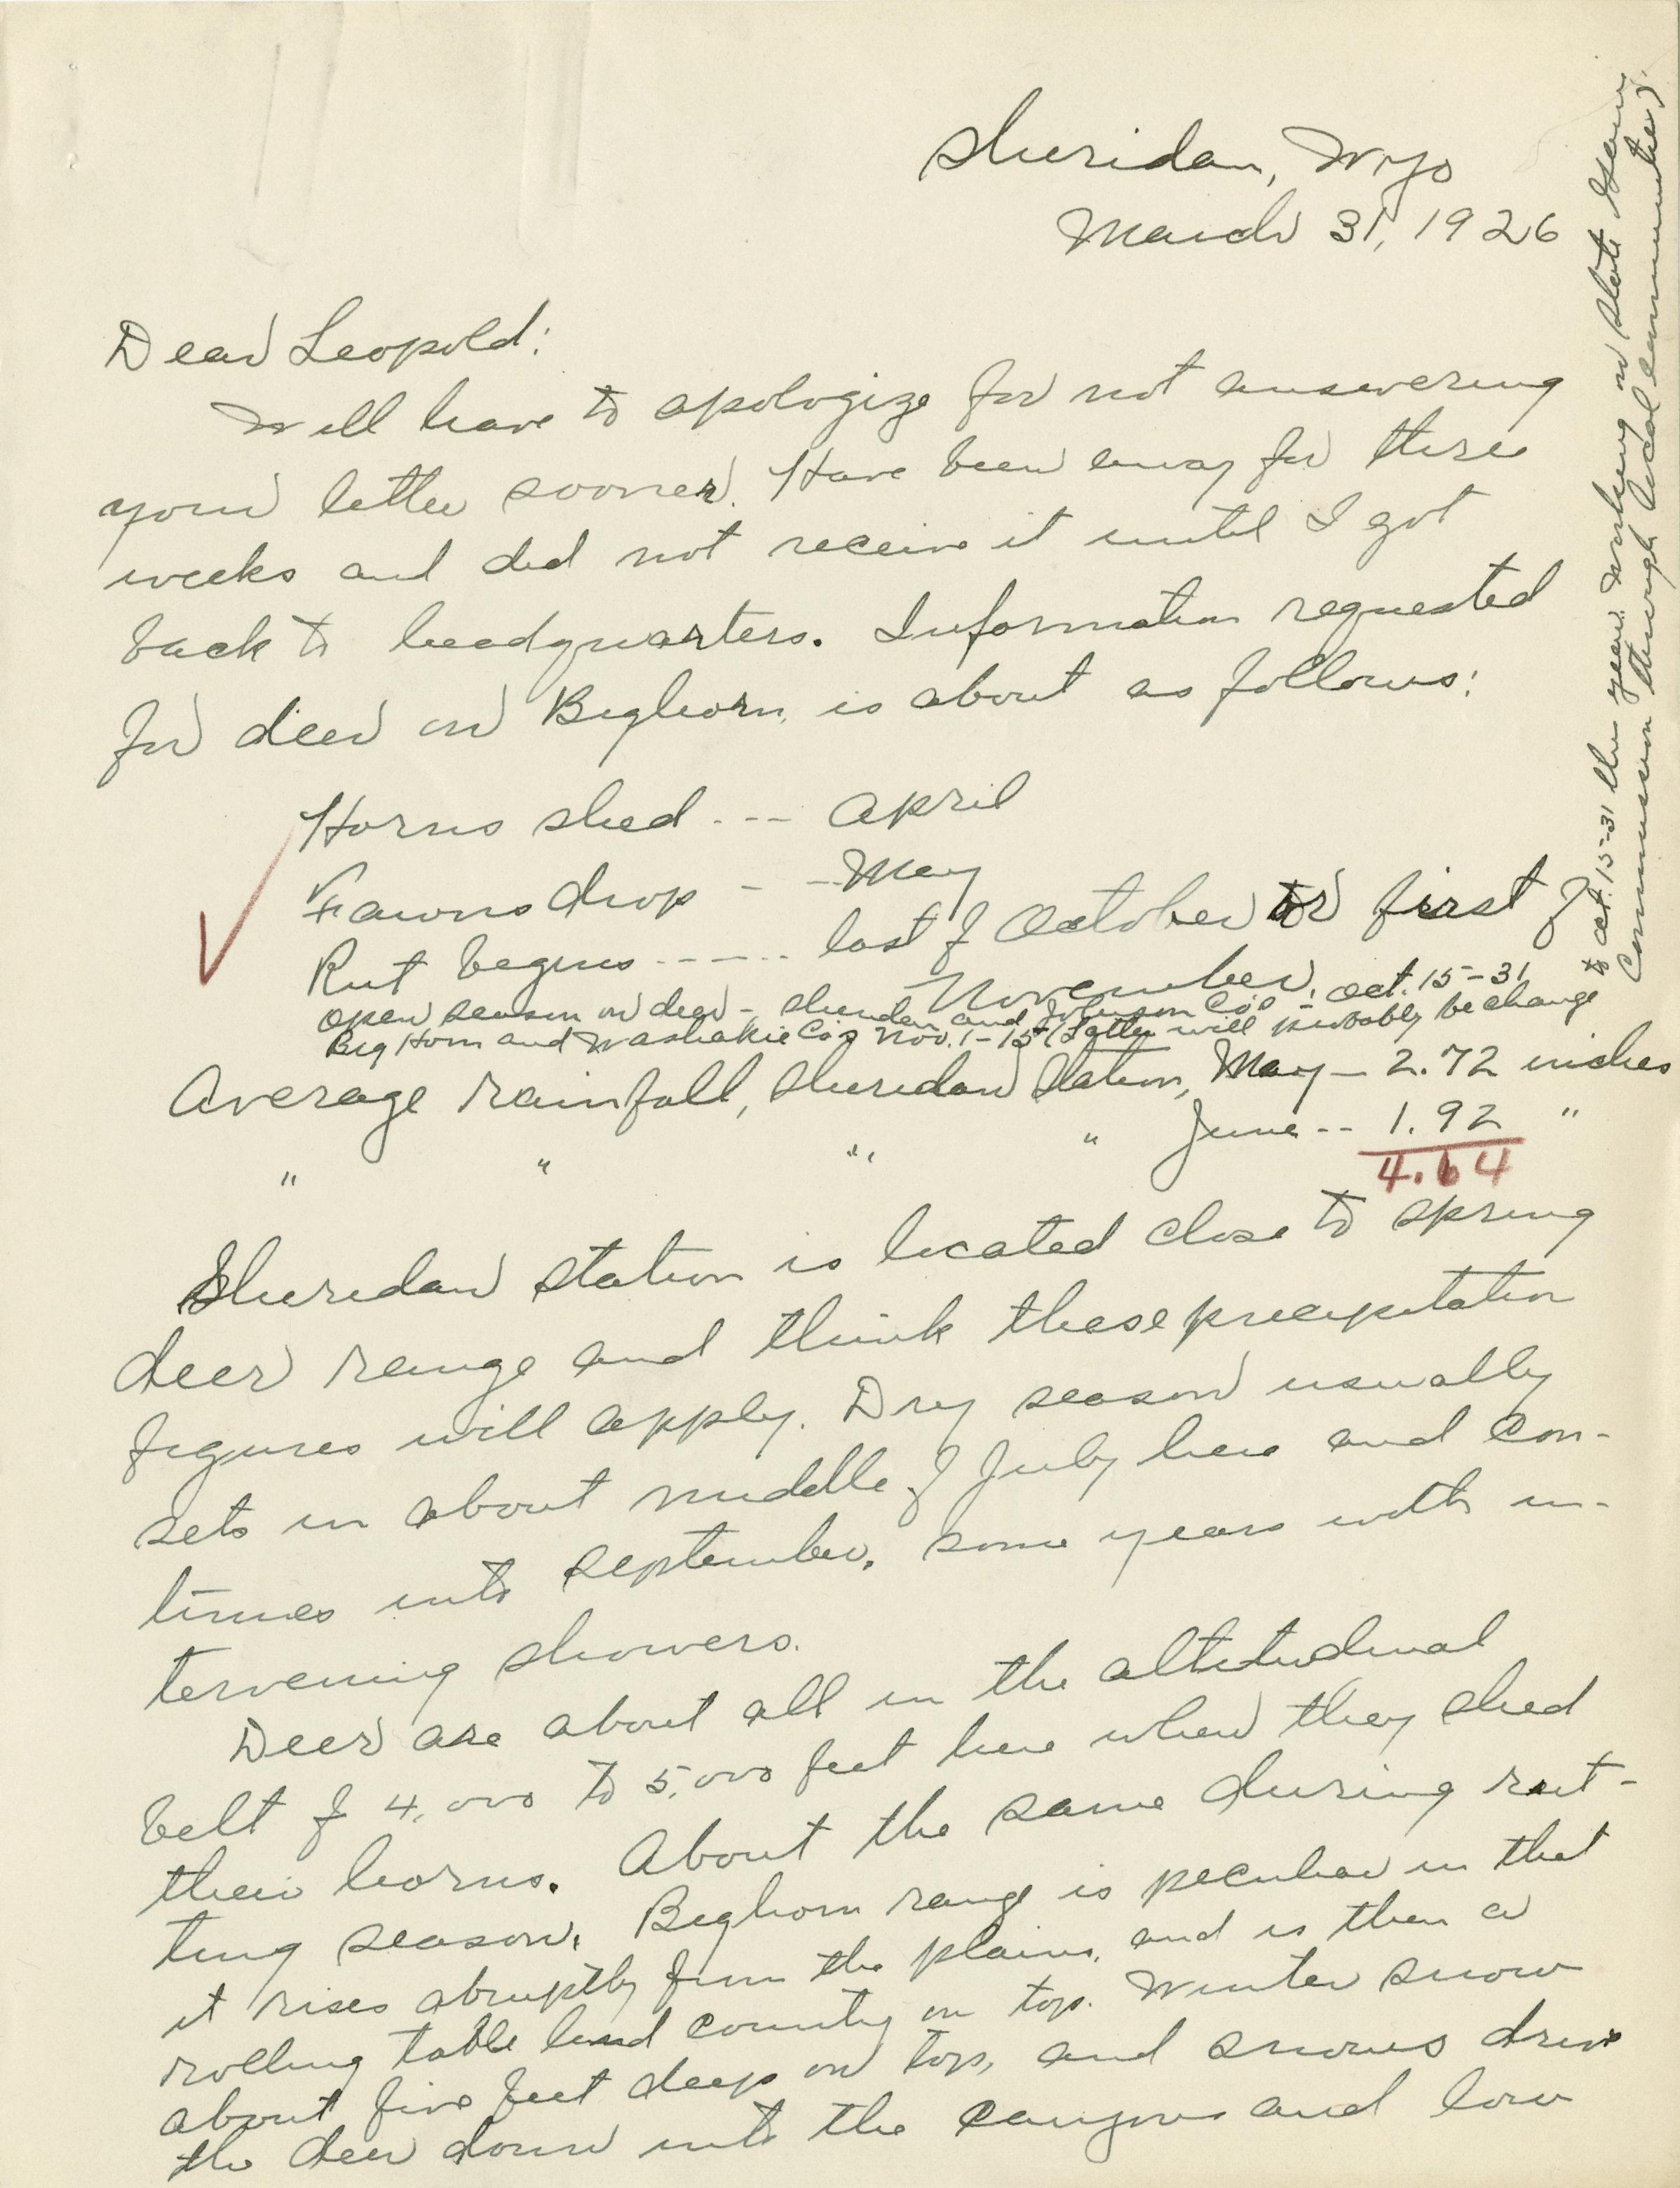 Sheridan, Wyo
March 31, 1926
Dear Leopold:
Will have to apologize for not answering
your letter sooner. Have been away for three
weeks and did not receive it until I got
back to headquarters. Information requested
for deer on Bighorn is about as follows:
Horns shed --- April
Fawns drop - -- May
Rut begins ------ last of October or first of
November.
Open season on deer - Sheridan and Johnson Co's - Oct. 15-31
Big Horn and Washakie Co's Nov. 1-15 (Latter will probably be change
to Oct. 15-31 this year. Working on State Game
Commission through local communities).
Average rainfall, Sheridan Station, May - 2.72 inches
" " " " June -- 1.92 "
4.64
Sheridan station is located close to spring
deer range and think these precipitation
figures will apply. Dry season usually
sets in about middle of July here and con-
tinues into September, some years with in-
tervening showers.
Deer are about all in the altitudinal
belt of 4,000 to 5,000 feet here when they shed
their horns. About the same during rut-
ting season. Bighorn range is peculiar in that
it rises abruptly from the plains, and is then a
rolling table land country on top. Winter snow
about five feet deep on top, and snows drive
the deer down into the canyons and low